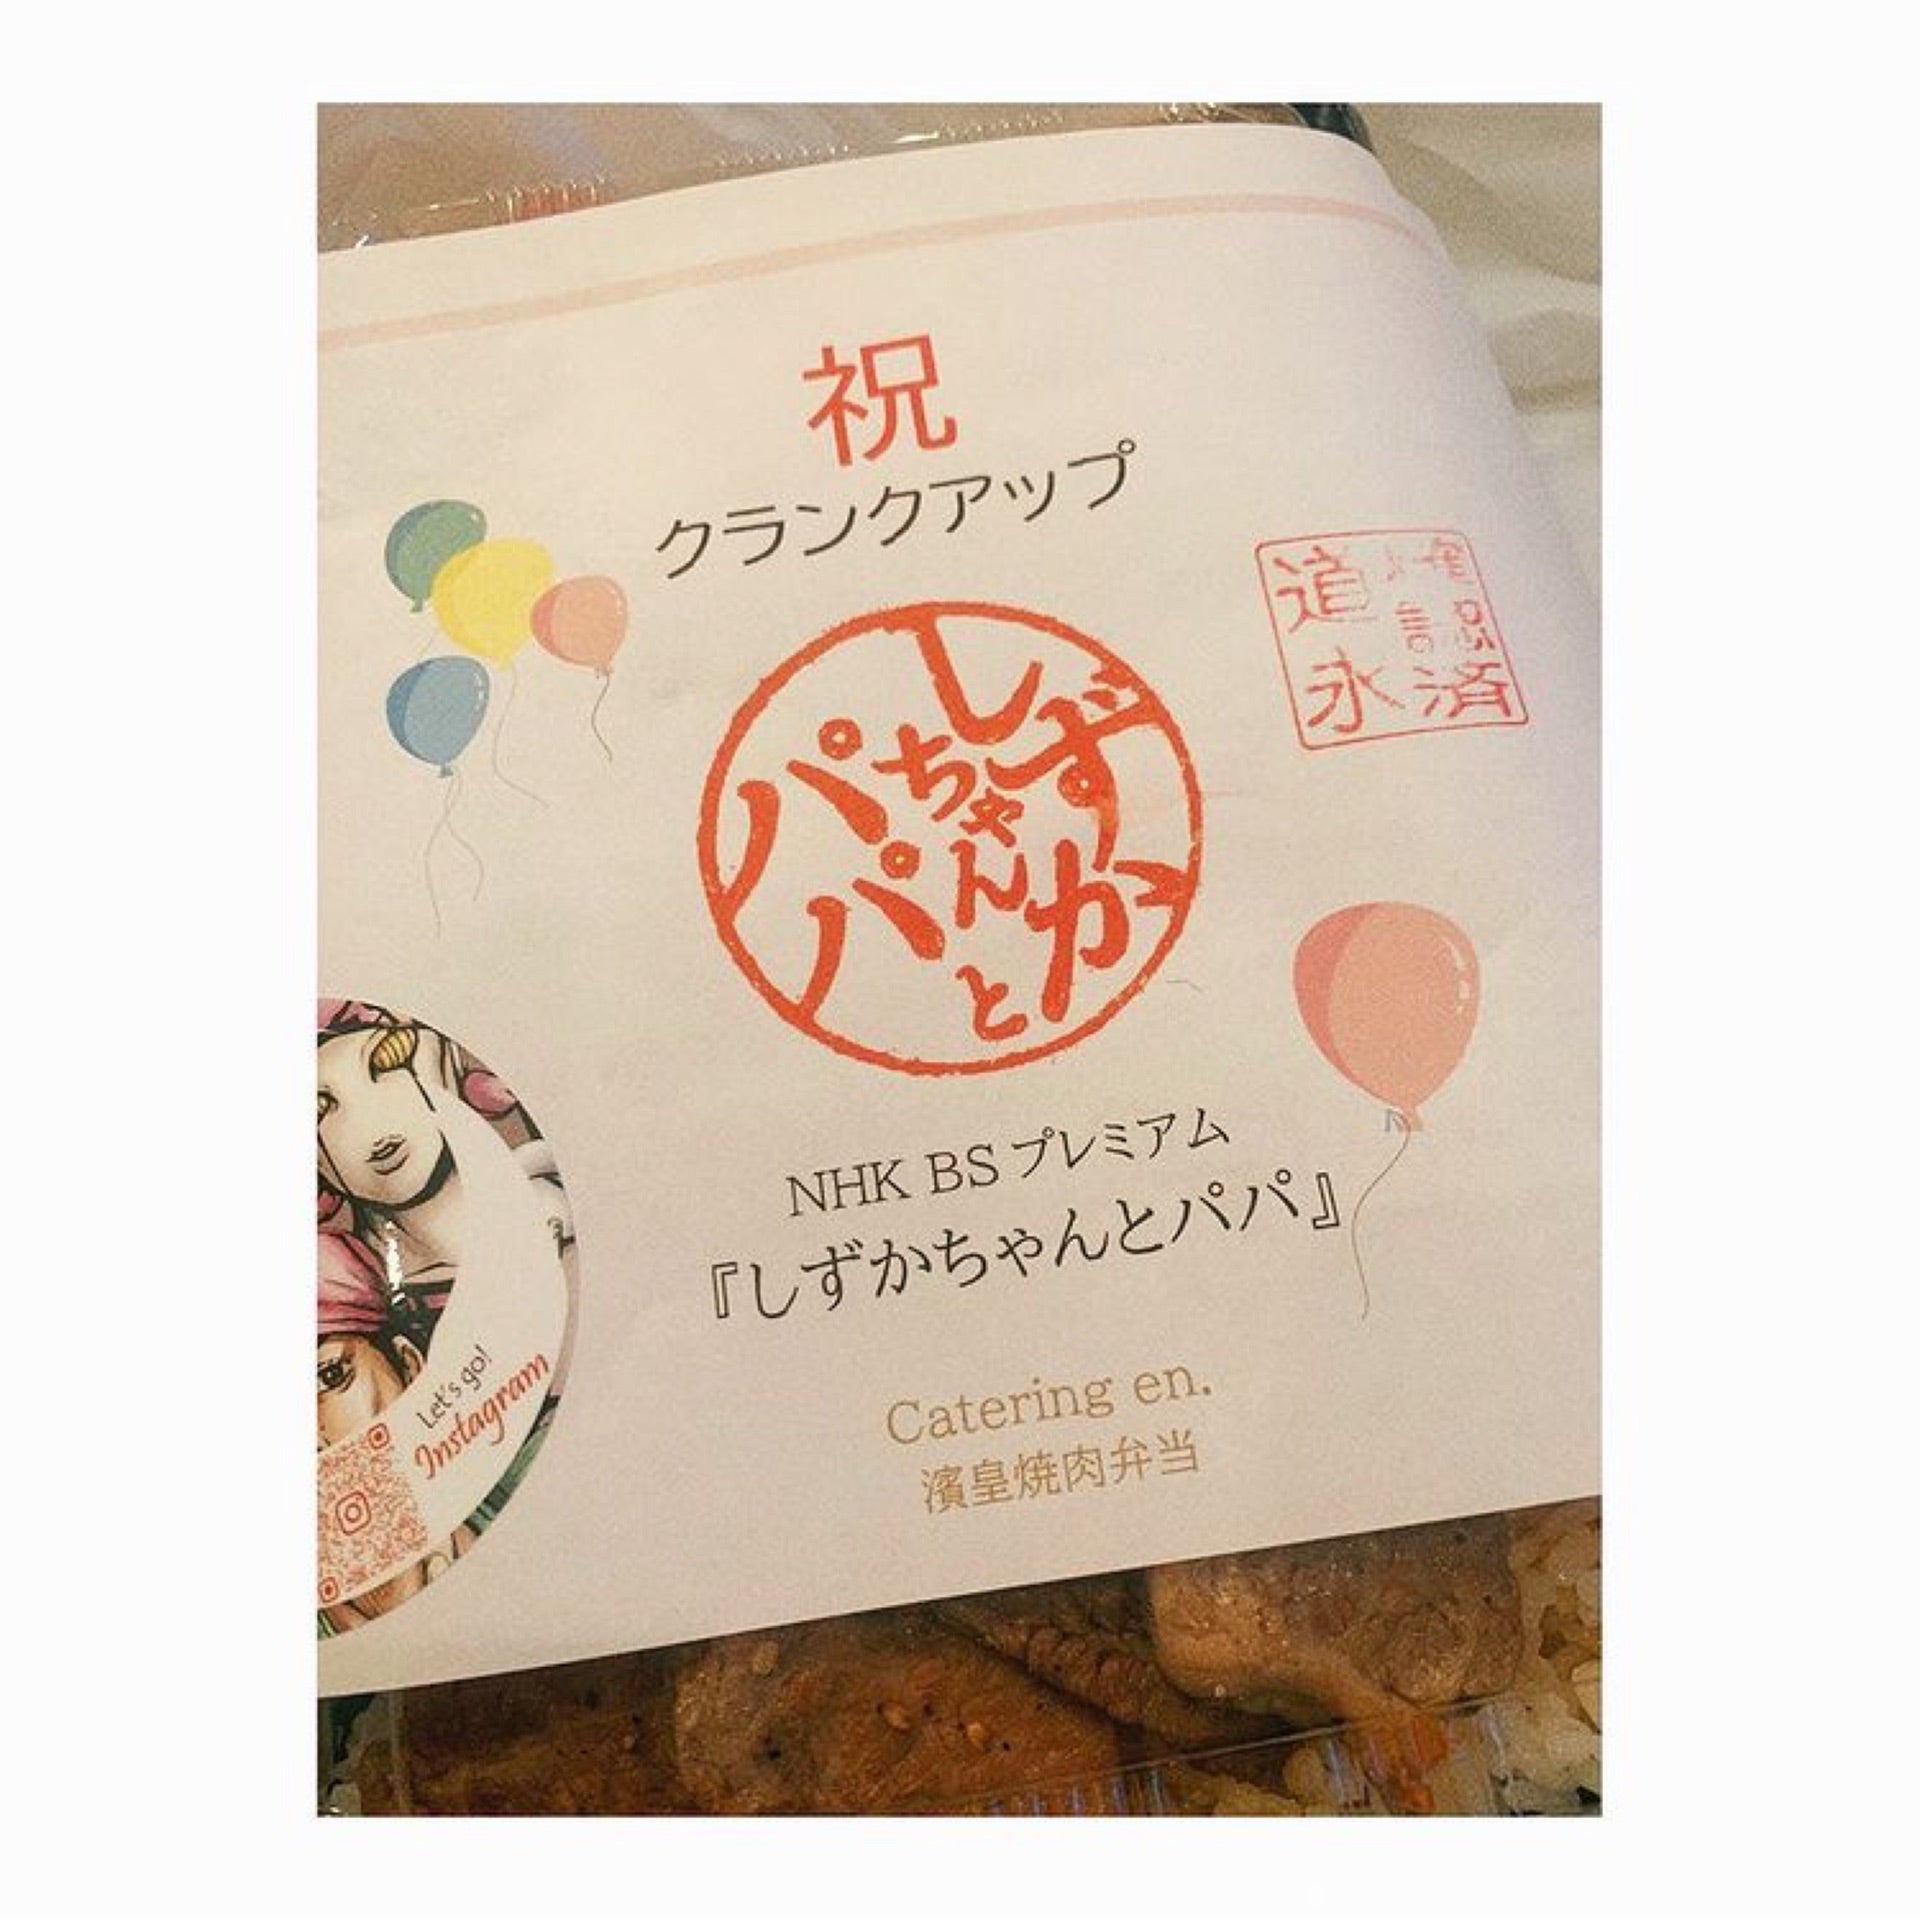 祝
クランクアップ
しずか
ちゃんと
パパ
道
永 済
NHK BSプレミアム
『しずかちゃんとパパ』
Catering en.
濱皇焼肉弁当
Let's go!
Instagram